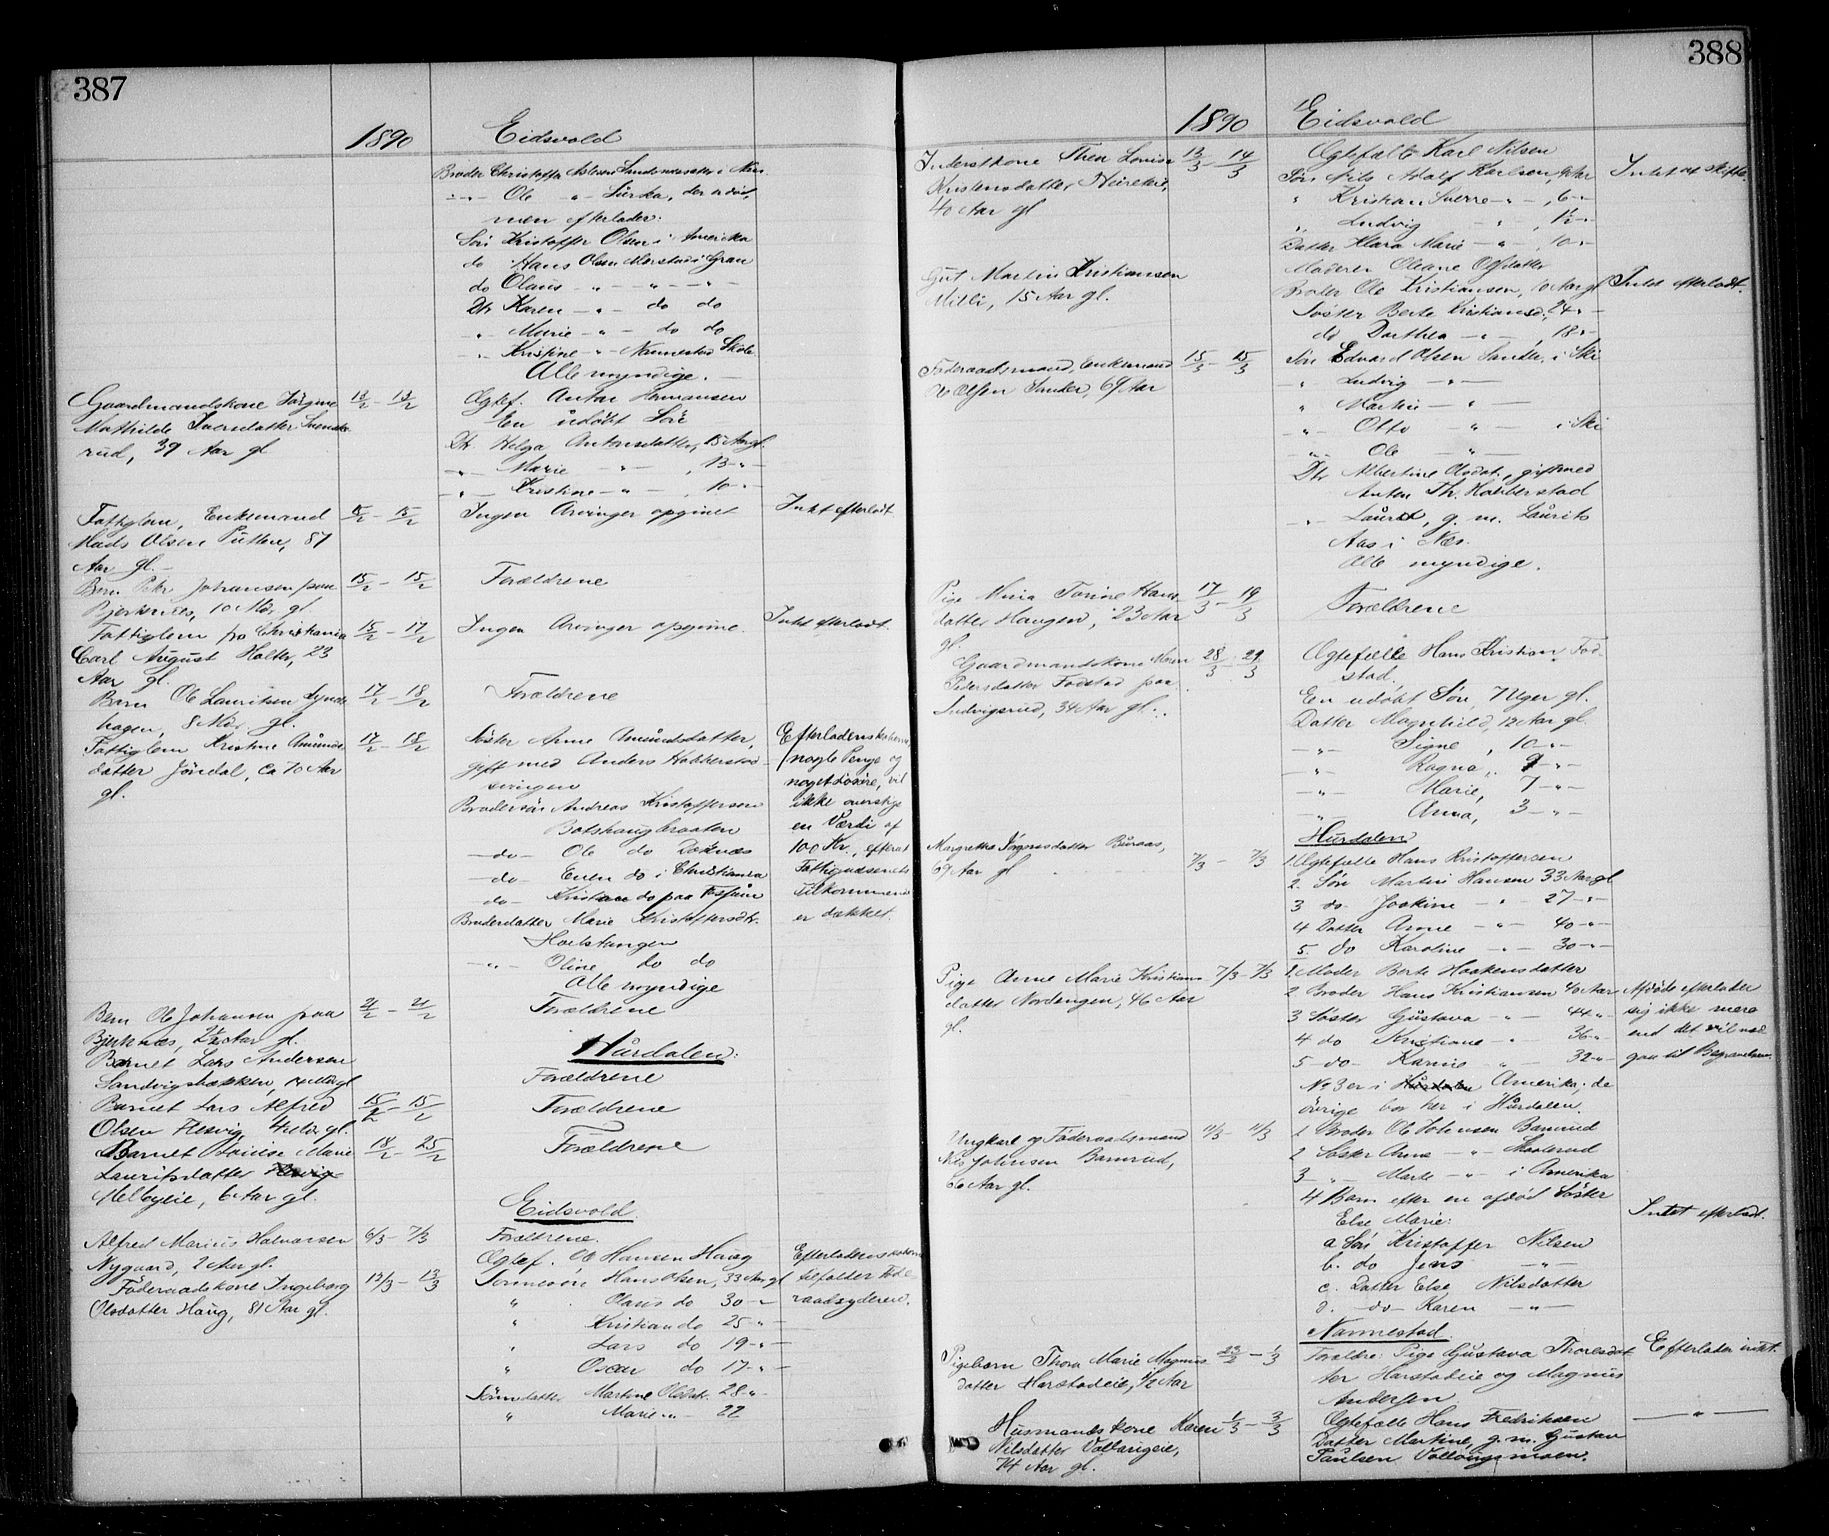 387
1890 Eidsvold
Broder Christoffer Aslesen Sandsnæssæter i Næs
-"- Ole " Lürka, der er död,
men efterlader:
Sön Kristoffer Olsen i Amerika
do Hans Olsen Morstad i Gran
do Olaus - " - " - " -
Dtr Karen - " - do do
" Marie - " - do do
-"- Kristine - " - Nannestad Skole
Alle myndige. -
Gaardmandskone Jörgine 13/2 - 13/2 Ægtef. Anton Hermansen
Mathilde Iversdatter Svenske- En udöbt Sön
rud, 39 Aar gl Dtr Helga Antonsdatter, 15 Aar gl.
-"- Marie - " - , 13 - " -
-"- Kristine - " - , 10 - " -
Fattiglem, Enkemand 15/2 - 15/2 Ingen Arvinger opgivet Intet efterladt
Mads Olsen Putten, 87
Aar gl. -
Barn Petr Johansen paa 15/2 - 15/2 Forældrene
Bjerknes, 10 Mdr. gl.
Fattiglem fra Christiania 15/2 - 17/2 Ingen Arvinger opgivne. Intet efterladt.
Carl August Holter, 23
Aar gl.
Barn Ole Lauritsen Lynde- 17/2 - 18/2 Forældrene
hagen, 8 Mdr. gl.
Fattiglem Kristine Amunds- 17/2 - 18/2 Söster Anne Amundsdatter, Efterladenskaberne,
datter Jöndal, ca 70 Aar gift med Anders Habberstad- nogle Penge og
gl. svingen noget Lösöre, vil
Brodersön Andreas Kristoffersen ikke overstige
Botshaugbraaten en Værdi af
- do - Ole do Doknæs 100 Kr., efterat
- do - Even do i Christiania Fattigvæsenets
do - Kristian do paa Fosfum Tilkommende
Broderdatter Marie Kristoffersdtr. er dækket.
Hoelstangen
- " - Oline do do
Alle myndige
Barn Ole Johansen paa 21/2 - 21/2 Forældrene
Bjerknæs, 2½ Aar gl.
Hurdalen:
Barnet Lars Andersen
Sandvigsbakken, 14 Mdr gl Forældrene
Barnet Lars Alfred 15/2 - 15/2 Forældrene
Olsen Flesvig, 4 Mdr. gl.
Barnet Lovise Marie 18/2 - 25/2 Forældrene
Lauritsdatter
Melbyeie, 6 Aar gl.
Eidsvold.
Alfred Marius Halvorsen 6/3 - 7/3 Forældrene.
Nygaard, 2 Aar gl. Ægtef. Ole Hansen Haug Efterladenskaberne
Föderaadskone Ingeborg 13/3 - 13/3 Sönnesön Hans Olsen, 33 Aar gl tilfalder Föde-
Olsdatter Haug, 81 Aar gl. " Olaus do 30 - " raadsyderen.
" Kristian do 25 - " -
" Lars do 19 - " -
" Oscar do 17 - " -
Sönnedatter Martine Olsdtr. 28 - " -
" Marie - " - 22
388
1890 Eidsvold
Inderstkone Thea Lovise 13/3 - 14/3 Ægtefælle Karl Nilsen
Kristensdatter Sön Nils Adolf Karlsen, Aar Intet at skifte
40 Aar gl " Kristian Sverre - " - , 6 - "
" Ludvig " , 1½ - "
Datter Klara Marie - " - , 10 - "
Gut Martin Kristiansen Moderen Oleane Olsdatter
Mistli, 15 Aar gl. Broder Ole Kristiansen, 10 Aar gl Intet efterladt.
Söster Berte Kristiansd., 24 - " -
do Dorthea - " - , 18 - " -
Föderaadsmand, Enkemand 15/3 - 15/3 Sön Edvard Olsen Sander, i Ski
O. Olsen Sander, 69 Aar -"- Ludvig - " -
" Martin - " -
-"- Otto - " - i Ski
-"- Ole - " -
Dtr Albertine Olsdtr, gift med
Anton Th. Habberstad
-"- Laura, g. m. Laurits
Aas i Næs.
Alle myndige.
Pige Mina Torine Hans- 17/3 - 19/3 Forældrene
datter Haugen, 23 Aar
gl.
Gaardmandskone Maren 28/3 - 29/3 Ægtefælle Hans Kristian Fod-
Pedersdatter Fodstad paa stad.
Ludvigsrud, 34 Aar gl. En udöbt Sön, 7 Uger gl.
Datter Magnhild, 12 Aar gl.
-"- Signe, 10 - " -
-"- Ragna, 9 - " -
-"- Marie, 7 - " -
-"- Anna, 3 - " -
Hurdalen
Margrethe Jörgensdatter Buraas, 7/3 - 7/3 1. Ægtefælle Hans Kristoffersen
69 Aar gl 2. Sön Martin Hansen 33 Aar gl
3 do Joakim - " - 27 - " -
4 Datter Anne - " - 40 - " -
5. do Karoline - " - 30 - " -
Pige Anne Marie Kristians- 7/3 - 7/3 1. Moder Berte Haakensdatter
datter Nordengen, 46 Aar 2 Broder Hans Kristiansen 40 Aar Afdöde efterlader
gl. 3 Söster Gustava - " - 44 " sig ikke mere
4 do Kristiane - " - 36 - " end det vil med-
5 - do - Karine " 32 - " gaa til Begravelsen
No 3 er i Hurdalen Amerika; de
övrige bor her i Hurdalen.
Ungkarl og Föderaadsmand 11/3 - 11/3 1 Broder Ole Johnsen Bamrud
Nils Johnsen Bamrud, 2 Söster Anne - " -
66 Aar gl. 3 " Marte - " - i Amerika
4 Barn efter en afdöd Söster
Else Marie: Intet efterladt.
a Sön Kristoffer Nilsen
b. do Jens - " -
c. Datter Else Nilsdatter
d. - do - Karen - " -
Nannestad
Pigebarn Thora Marie Magnus- 23/2 - 1/3 Forældre: Pige Gustava Thoresdat- Efterlader intet.
datter Harstadeie, ½ Aar ter Harstadeie og Magnus
Andersen
Husmandskone Karen 1/3 - 3/3 Ægtefælle Hans Fredriksen - " -
Nilsdatter Vollaugeie, Datter Martine, g. m. Gustav
74 Aar gl. Paulsen Vollaugsmoen.